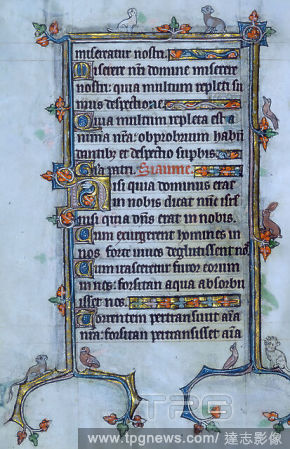 misereatur nostri.
Miserere nr̄i domine miserere
nostri: quia multum repleti su
mus despectione.
Quia multum repleta est a
nima nr̄a: obprobrium habū
dantibꝫ et despectio suꝑbis.
Gl̄a patri. Ps̄alm̄.
Nisi quia dominus erat
in nobis dicat nūc isrl̄
nisi quia dn̄s erat in nobis.
Cum exurgerent homines in
nos: forte viuos deglutissent nos.
Cum irasceretur furor eorum
in nos: forsitan aqua absorbu
isset nos.
Torrentem pertransiuit aīa
nr̄a: forsitan pertransisset aīa
TPG
www.tpgnews.com/ 達志影像